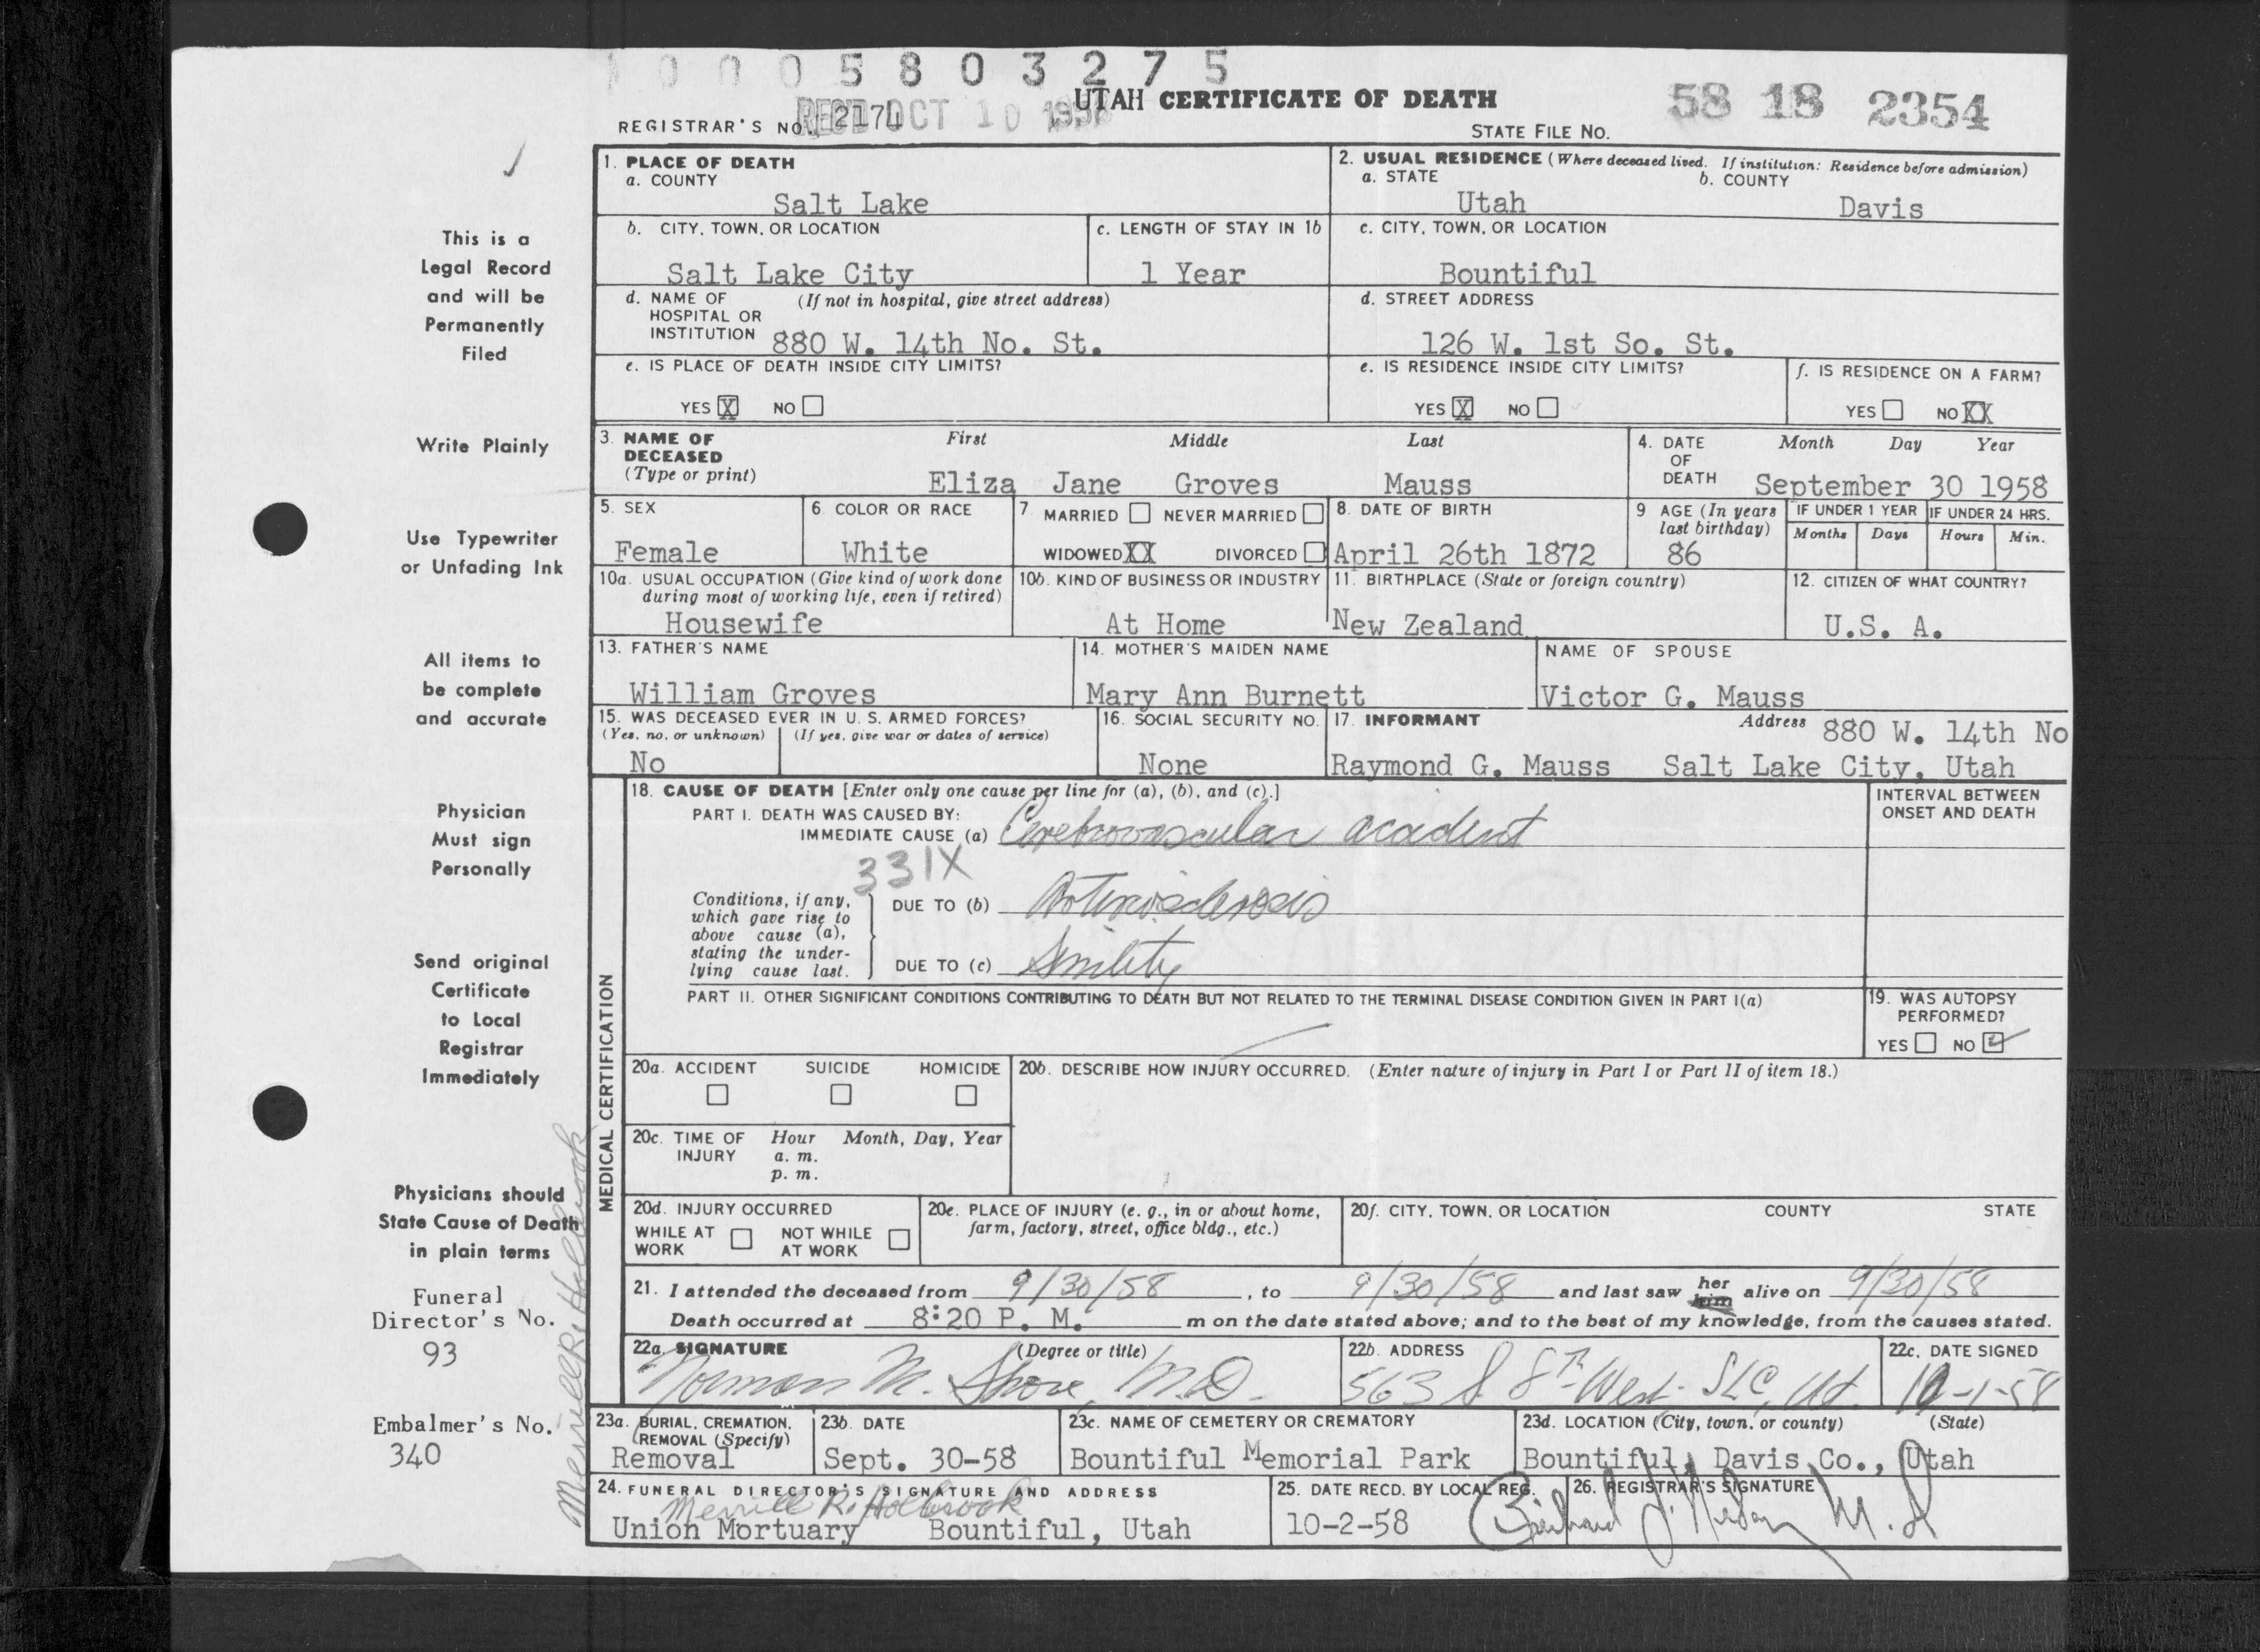 0 0 0 5 8 0 3 2 7 5
UTAH CERTIFICATE OF DEATH
58 18 2354
REGISTRAR'S NO. 2174 REC'D OCT 10 1958
STATE FILE NO.
1. PLACE OF DEATH
a. COUNTY
Salt Lake
2. USUAL RESIDENCE (Where deceased lived. If institution: Residence before admission)
a. STATE b. COUNTY
Utah Davis
b. CITY, TOWN, OR LOCATION
Salt Lake City
c. LENGTH OF STAY IN 1b
1 Year
c. CITY, TOWN, OR LOCATION
Bountiful
d. NAME OF HOSPITAL OR INSTITUTION (If not in hospital, give street address)
880 W. 14th No. St.
d. STREET ADDRESS
126 W. 1st So. St.
e. IS PLACE OF DEATH INSIDE CITY LIMITS?
YES X NO
e. IS RESIDENCE INSIDE CITY LIMITS?
YES X NO
f. IS RESIDENCE ON A FARM?
YES NO XX
3. NAME OF DECEASED (Type or print)
First Middle Last
Eliza Jane Groves Mauss
4. DATE OF DEATH
Month Day Year
September 30 1958
5. SEX
Female
6. COLOR OR RACE
White
7. MARRIED NEVER MARRIED
WIDOWED XX DIVORCED
8. DATE OF BIRTH
April 26th 1872
9 AGE (In years last birthday)
86
IF UNDER 1 YEAR
Months Days
IF UNDER 24 HRS.
Hours Min.
10a. USUAL OCCUPATION (Give kind of work done during most of working life, even if retired)
Housewife
10b. KIND OF BUSINESS OR INDUSTRY
At Home
11. BIRTHPLACE (State or foreign country)
New Zealand
12. CITIZEN OF WHAT COUNTRY?
U.S. A.
13. FATHER'S NAME
William Groves
14. MOTHER'S MAIDEN NAME
Mary Ann Burnett
NAME OF SPOUSE
Victor G. Mauss
15. WAS DECEASED EVER IN U. S. ARMED FORCES?
(Yes, no, or unknown) (If yes, give war or dates of service)
No
16. SOCIAL SECURITY NO.
None
17. INFORMANT Address
880 W. 14th No
Raymond G. Mauss Salt Lake City, Utah
18. CAUSE OF DEATH [Enter only one cause per line for (a), (b), and (c).]
INTERVAL BETWEEN ONSET AND DEATH
PART I. DEATH WAS CAUSED BY:
IMMEDIATE CAUSE (a) Cerebrovascular accident
331X
Conditions, if any, which gave rise to above cause (a), stating the underlying cause last.
DUE TO (b) Arteriosclerosis
DUE TO (c) Senility
PART II. OTHER SIGNIFICANT CONDITIONS CONTRIBUTING TO DEATH BUT NOT RELATED TO THE TERMINAL DISEASE CONDITION GIVEN IN PART I(a)
19. WAS AUTOPSY PERFORMED?
YES NO ✓
MEDICAL CERTIFICATION
20a. ACCIDENT SUICIDE HOMICIDE
20b. DESCRIBE HOW INJURY OCCURRED. (Enter nature of injury in Part I or Part II of item 18.)
20c. TIME OF INJURY Hour Month, Day, Year
a. m.
p. m.
20d. INJURY OCCURRED
WHILE AT WORK NOT WHILE AT WORK
20e. PLACE OF INJURY (e. g., in or about home, farm, factory, street, office bldg., etc.)
20f. CITY, TOWN, OR LOCATION COUNTY STATE
21. I attended the deceased from 9/30/58, to 9/30/58 and last saw her him alive on 9/30/58
Death occurred at 8:20 P. M. m on the date stated above; and to the best of my knowledge, from the causes stated.
22a. SIGNATURE (Degree or title)
Norman M. Shore, M.D.
22b. ADDRESS
563 S 8th West SLC, Ut.
22c. DATE SIGNED
10-1-58
23a. BURIAL, CREMATION, REMOVAL (Specify)
Removal
23b. DATE
Sept. 30-58
23c. NAME OF CEMETERY OR CREMATORY
Bountiful Memorial Park
23d. LOCATION (City, town, or county) (State)
Bountiful, Davis Co., Utah
24. FUNERAL DIRECTOR'S SIGNATURE AND ADDRESS
Merrill R. Holbrook
Union Mortuary Bountiful, Utah
25. DATE RECD. BY LOCAL REG.
10-2-58
26. REGISTRAR'S SIGNATURE
M.D
This is a
Legal Record
and will be
Permanently
Filed
Write Plainly
Use Typewriter
or Unfading Ink
All items to
be complete
and accurate
Physician
Must sign
Personally
Send original
Certificate
to Local
Registrar
Immediately
Physicians should
State Cause of Death
in plain terms
Funeral
Director's No.
93
Embalmer's No.
340
Merrill R. Holbrook